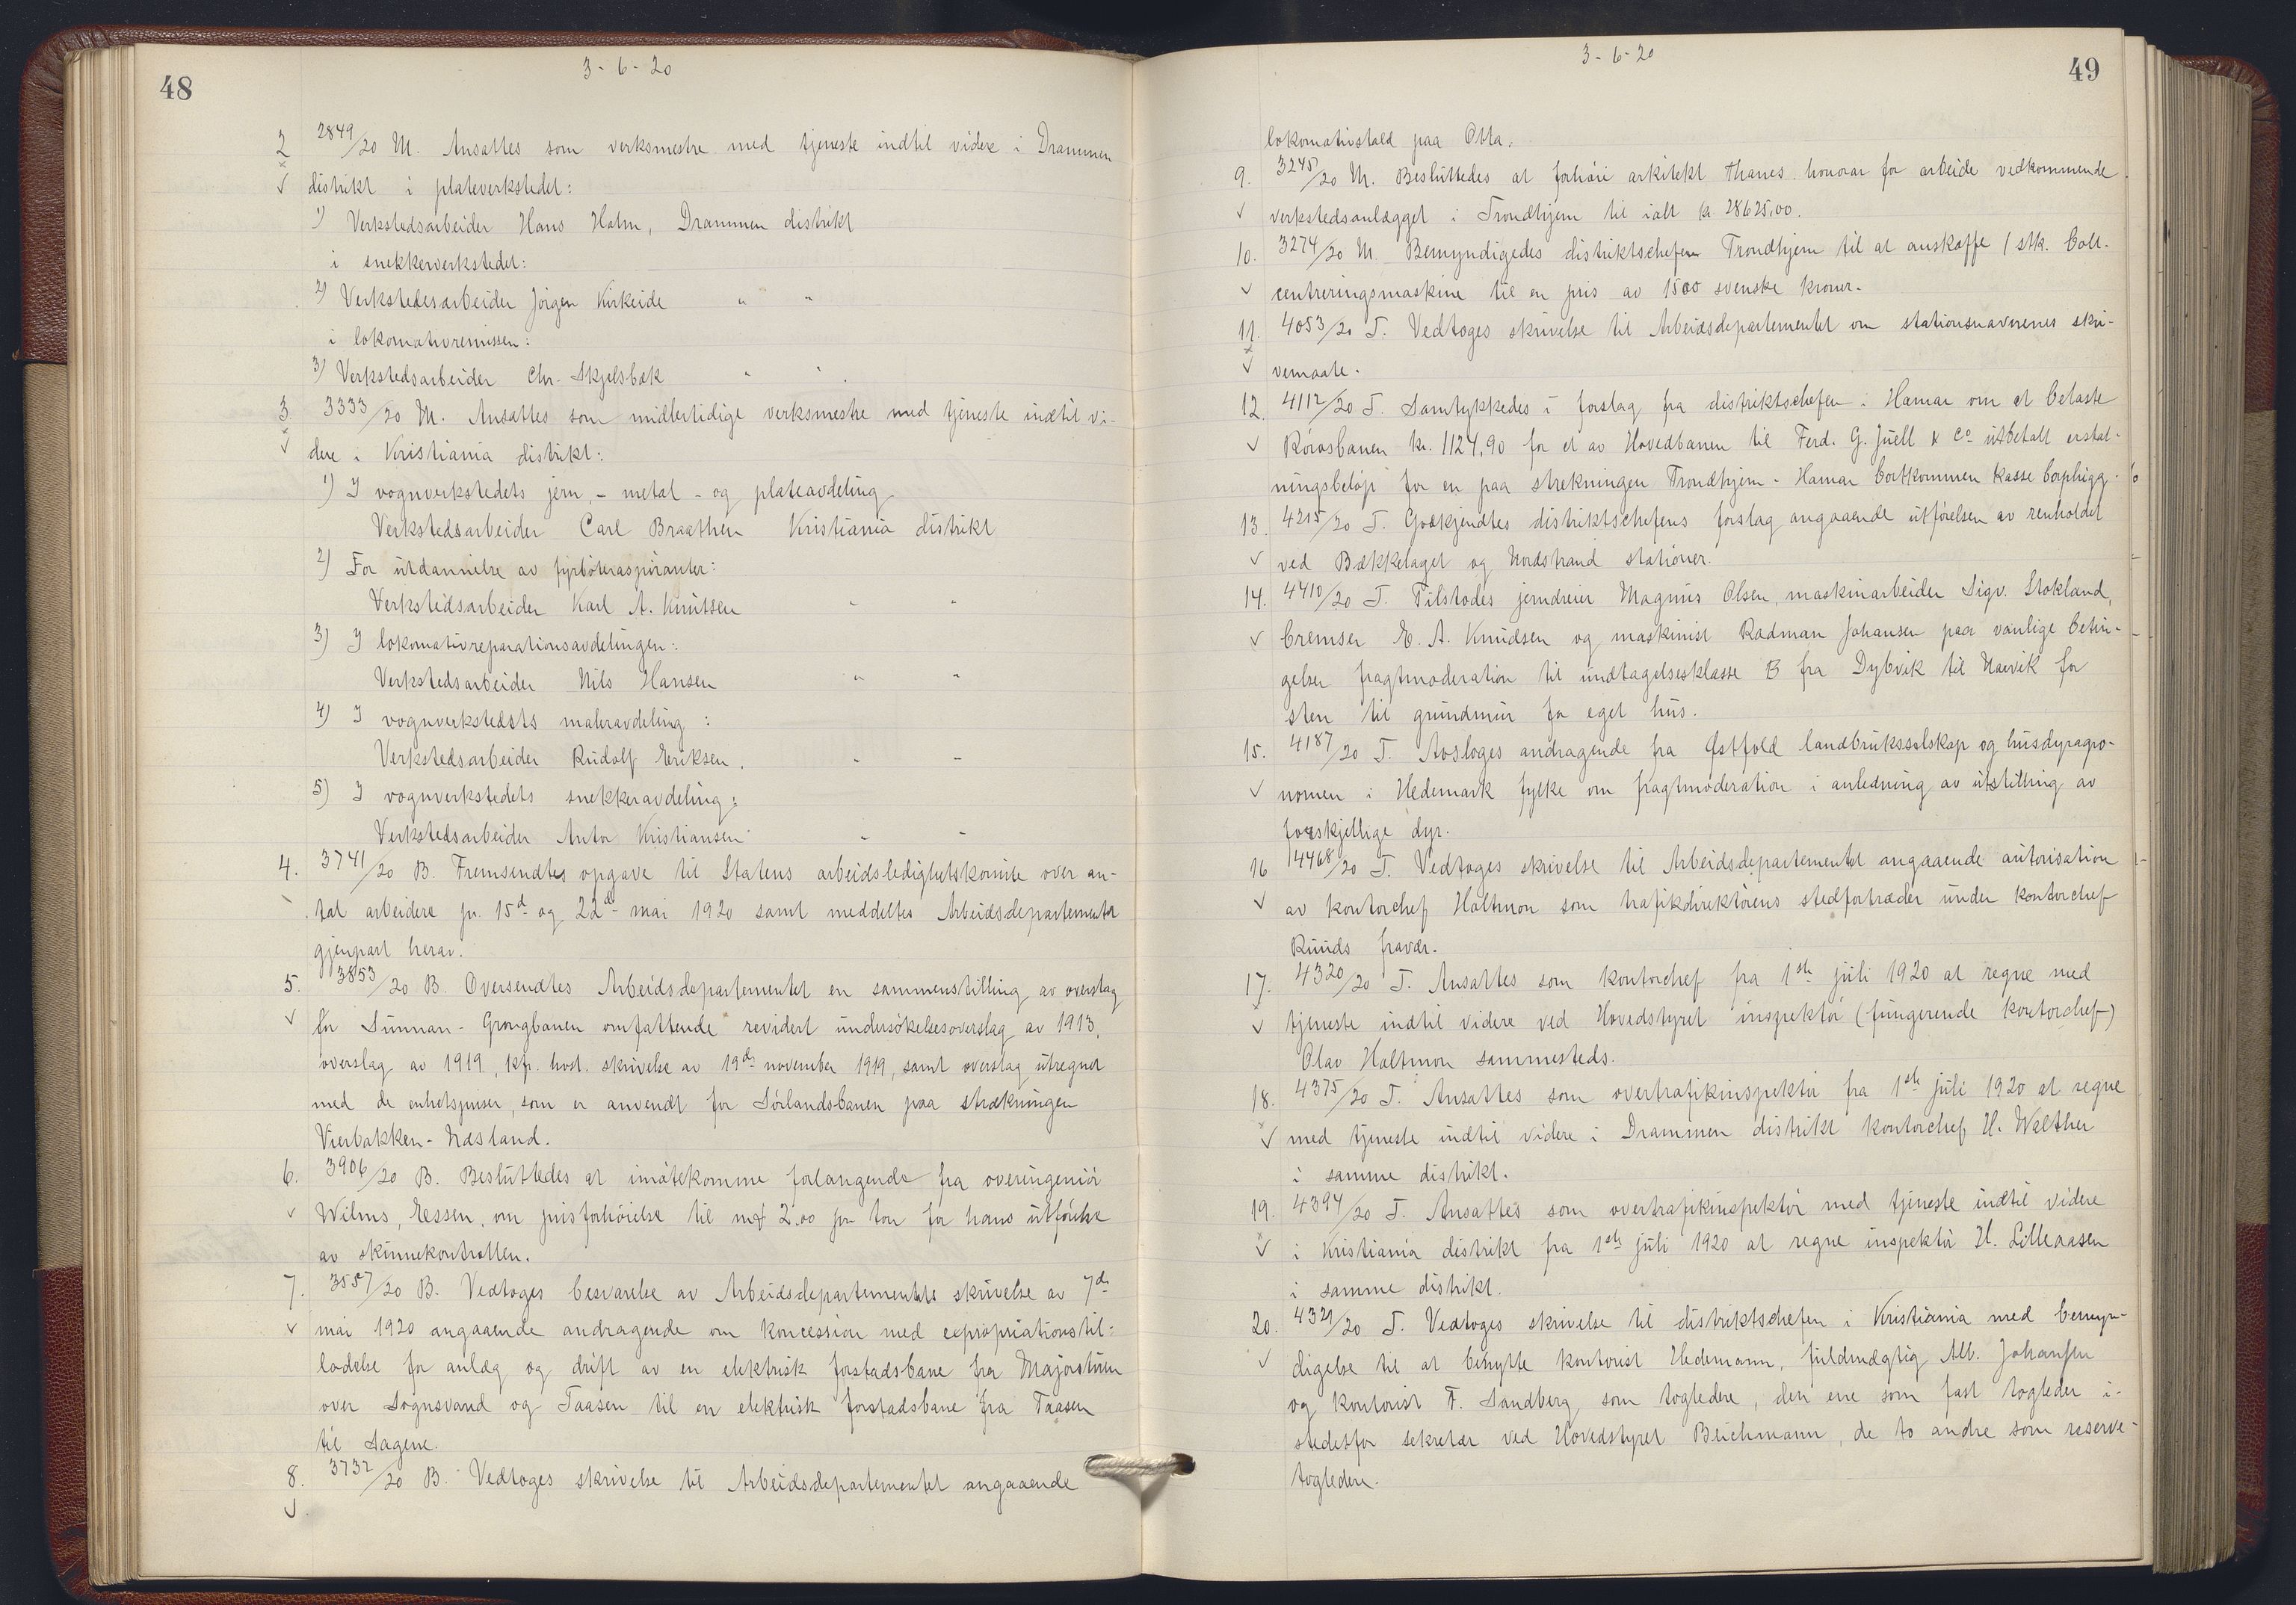 48
3-6-20
2 2849/20 M. Ansattes som verksmestre med tjeneste indtil videre i Drammen
distrikt i plateverkstedet:
1) Verkstedsarbeider Hans Holm, Drammen distrikt
i snekkerverkstedet:
2) Verkstedsarbeider Jörgen Kirkeide " "
i lokomativremissen:
3) Verkstedsarbeider Chr. Skjelsbæk " "
3 3333/20 M. Ansattes som midlertidige verksmestre med tjeneste indtil vi-
dere i Kristiania distrikt:
1) I vognverkstedets jern,- metal- og plateavdeling
Verkstedsarbeider Carl Braathen Kristiania distrikt
2) For utdannelse av fyrböteraspiranter:
Verkstedsarbeider Karl A. Knutsen " "
3) I lokomativreparationsavdelingen:
Verkstedsarbeider Nils Hansen " "
4) I vognverkstedets maleravdeling:
Verkstedsarbeider Rudolf Eriksen. " "
5) I vognverkstedets snekkeravdeling:
Verkstedsarbeider Anton Kristiansen " "
4. 3741/20 B. Fremsendtes opgave til Statens arbeidsledighetskomite over an-
tal arbeidere pr. 15d og 22d mai 1920 samt meddeltes Arbeidsdepartementet
gjenpart herav.
5. 3853/20 B. Oversendtes Arbeidsdepartementet en sammenstilling av overslag
for Sunnan-Grongbanen omfattende revidert undersökelsesoverslag av 1913,
overslag av 1919, kfr. hvst. skrivelse av 19de november 1919, samt overslag utregnet
med de enhetspriser, som er anvendt for Sörlandsbanen paa strækningen
Vierbakken-Næsland.
6. 3906/20 B. Besluttedes at imötekomme forlangende fra overingeniör
Wilms, Essen, om prisforhöielse til mk 2.00 pr ton for hans utförelse
av skinnekontrollen.
7. 3557/20 B. Vedtoges besvarelse av Arbeidsdepartementets skrivelse av 7de
mai 1920 angaaende andragende om koncession med expropriationstil-
ladelse for anlæg og drift av en elektrisk forstadsbane fra Majorstuen
over Sognsvand og Taasen til en elektrisk forstadsbane fra Taasen
til Sagene.
8. 3732/20 B. Vedtoges skrivelse til Arbeidsdepartementet angaaende
3-6-20
49
lokomativstald paa Otta.
9. 3245/20 M. Besluttedes at forhöie arkitekt Thams honorar for arbeide vedkommende
verkstedsanlægget i Trondhjem til ialt kr 28625,00.
10. 3274/20 M. Bemyndigedes distriktschefen Trondhjem til at anskaffe 1 stk. bolt-
centreringsmaskine til en pris av 1500 svenske kroner.
11. 4053/20 T. Vedtoges skrivelse til Arbeidsdepartementet om stationsnavnenes skri-
vemaate.
12. 4112/20 T. Samtykkedes i forslag fra distriktschefen i Hamar om at belaste
Rörosbanen kr. 1124,90 for et av Hovedbanen til Ferd. G. Juell & Co utbetalt erstat-
ningsbelöp for en paa strekningen Trondhjem-Hamar bortkommen kasse
13. 4215/20 T. Godkjendtes distriktschefens forslag angaaende utförelsen av renholdet
ved Bækkelaget og Nordstrand stationer.
14. 4410/20 T. Tilstodes jerndreier Magnus Olsen, maskinarbeider Sigv. Stokland,
bremser E. A. Knudsen og maskinist Radman Johansen paa vanlige betin-
gelser fragtmoderation til undtagelsesklasse B fra Dybvik til Narvik for
sten til grundmur for eget hus.
15. 4187/20 T. Avsloges andragende fra Østfold landbruksselskap og husdyragro-
nomen i Hedemark fylke om fragtmoderation i anledning av utstilling av
forskjellige dyr.
16 4468/20 T. Vedtoges skrivelse til Arbeidsdepartementet angaaende autorisation
av kontorchef Holtmon som trafikdirektörens stedfortræder under kontorchef
Ruuds fravær.
17. 4320/20 T. Ansattes som kontorchef fra 1ste juli 1920 at regne med
tjeneste indtil videre ved Hovedstyret inspektör (fungerende kontorchef)
Olav Holtmon sammesteds.
18. 4375/20 T. Ansattes som overtrafikinspektör fra 1ste juli 1920 at regne
med tjeneste indtil videre i Drammen distrikt kontorchef H. Walther
i samme distrikt.
19. 4394/20 T. Ansattes som overtrafikinspektör med tjeneste indtil videre
i Kristiania distrikt fra 1ste juli 1920 at regne inspektör H. Lilleaasen
i samme distrikt.
20. 4329/20 T. Vedtoges skrivelse til distriktschefen i Kristiania med bemyn-
digelse til at benytte kontorist Hedemann, fuldmægtig Alb. Johansen
og kontorist F. Sandberg som togledere, den ene som fast togleder i-
stedetfor sekretær ved Hovedstyret Beichmann, de to andre som reserve-
togledere.